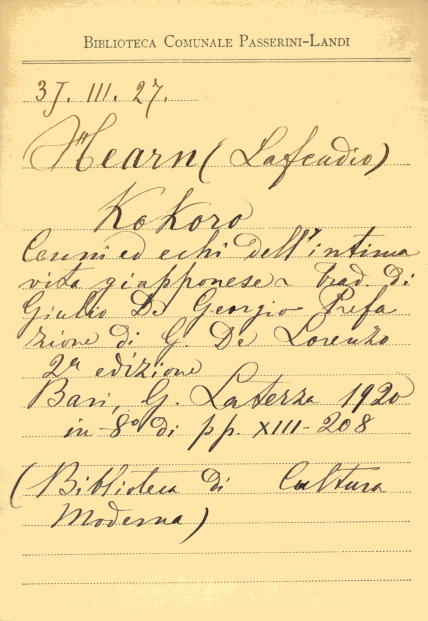 BIBLIOTECA COMUNALE PASSERINI-LANDI
3J. III. 27.
Hearn (Lafcadio)
Kokoro
Cenni ed echi dell'intima
vita giapponese - trad. di
Giulio De Georgio Prefa
zione di G. De Lorenzo
2ª edizione
Bari, G. Laterza 1920
in-8º di pp. XIII-208
(Biblioteca di Cultura
Moderna)